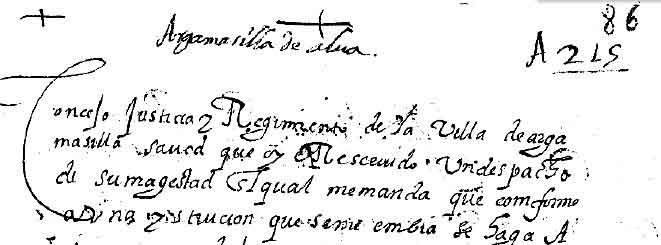 86
Argamasilla de alua.
A 215
Concejo Justicia y Regimiento de la Villa de arga
masilla saued que oy e Resceuido Un despacho
de su magestad El qual me manda que comforme
a Vna ynstrucion que se me embia se haga A